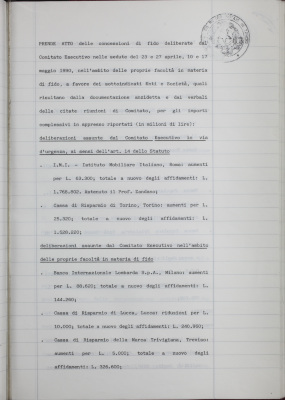 PRENDE ATTO delle concessioni di fido deliberate dal
Comitato Esecutivo nelle sedute del 20 e 27 aprile, 10 e 17
maggio 1990, nell'ambito delle proprie facoltà in materia
di fido, a favore dei sottoindicati Enti e Società, quali
risultano dalla documentazione anzidetta e dai verbali
delle citate riunioni di Comitato, per gli importi
complessivi in appresso riportati (in milioni di lire):
deliberazioni assunte dal Comitato Esecutivo in via
d'urgenza, ai sensi dell'art. 14 dello Statuto
. I.M.I. - Istituto Mobiliare Italiano, Roma: aumenti
per L. totale a nuovo degli affidamenti: L.
Astenuto il Prof.
. Cassa di Risparmio di Torino, Torino: aumenti per
L. totale a nuovo degli affidamenti: L.
deliberazioni assunte dal Comitato Esecutivo nell'ambito
delle proprie facoltà in materia di fido
. Banca Internazionale Lombarda S.p.A., Milano: aumenti
per L. totale a nuovo degli affidamenti: L.
. Cassa di Risparmio di Lucca, Lucca: riduzioni per L.
10.000; totale a nuovo degli affidamenti: L.
. Cassa di Risparmio della Marca Trivigiana, Treviso:
aumenti per L. 5.000; totale a nuovo degli
affidamenti: L.